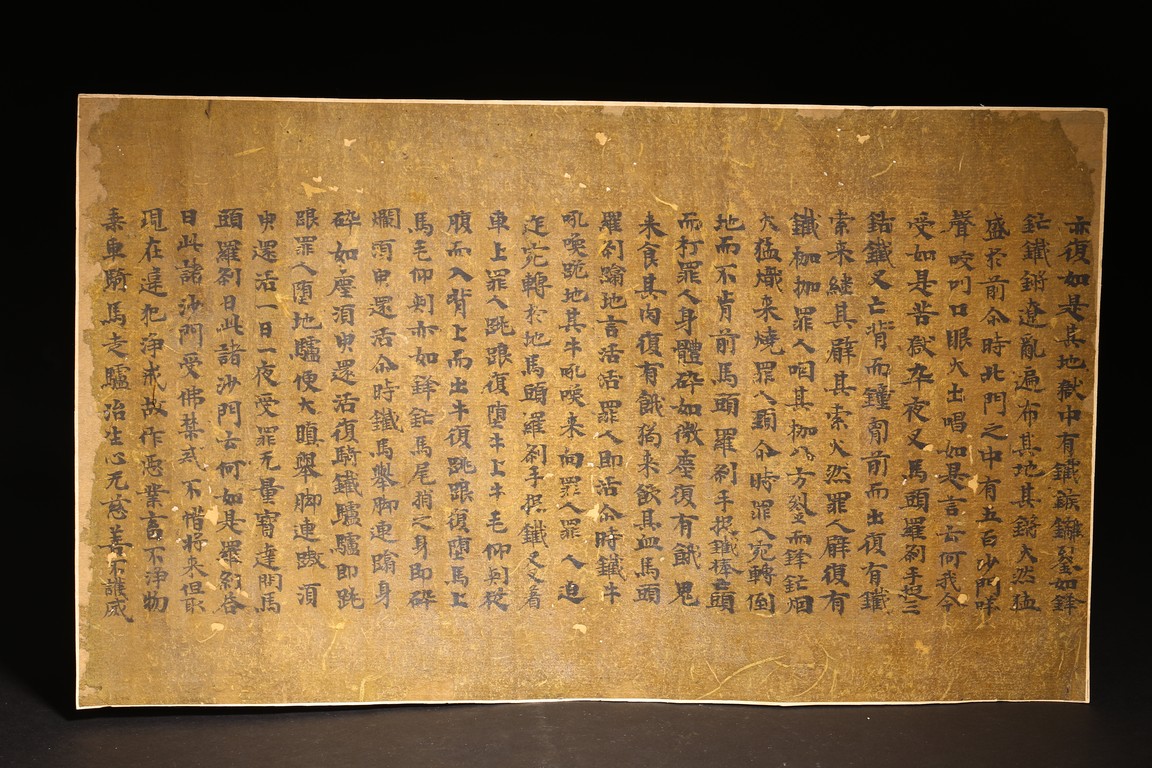 亦復如是其地獄中有鐵蒺鑗鋻如鋒
鋩鐵鏘遼亂遍布其地其鏘火然猛
盛於前尒時北門之中有五百沙門呼
聲咬叫口眼火出唱如是言云何我今
受如是苦獄卒夜叉馬頭羅刹手捉三
鈷鐵叉亡背而鐘匈前而出復有鐵
索来縺其辟其索火然罪人辟復有
鐵枷枷罪人咽其枷八方鋻而鋒鋩烟
火猛熾来燒罪人
尒時罪人宛轉倒
地而不肯前馬頭羅刹手捉鐵棒
頭
而打罪人身體碎如微塵復有餓鬼
来食其肉復有餓狗来飲其血馬頭
羅刹
地言活活罪人即活尒時鐵牛
吼喚跑地其牛吼喚来向罪人罪人迫
迮宛轉於地馬頭羅刹手捉鐵叉叉着
車上罪人跳踉復墮牛上牛毛仰刺從
腹而入背上而出牛復跳踉復墮馬上
馬毛仰刺亦如鋒鋩馬尾捎之身即碎
爛須臾還活尒時鐵馬舉脚連
身
碎如塵須臾還活復騎鐵驢驢即跳
踉罪人墮地驢便大瞋舉脚連
須
臾還活一日一夜受罪无量寶達問馬
頭羅刹曰此諸沙門云何如是羅刹答
曰此諸沙門受佛禁戒不惜將来但取
現在違犯淨戒故作惡業畜不淨物
乘車騎馬走驢冶生心无慈善不護威